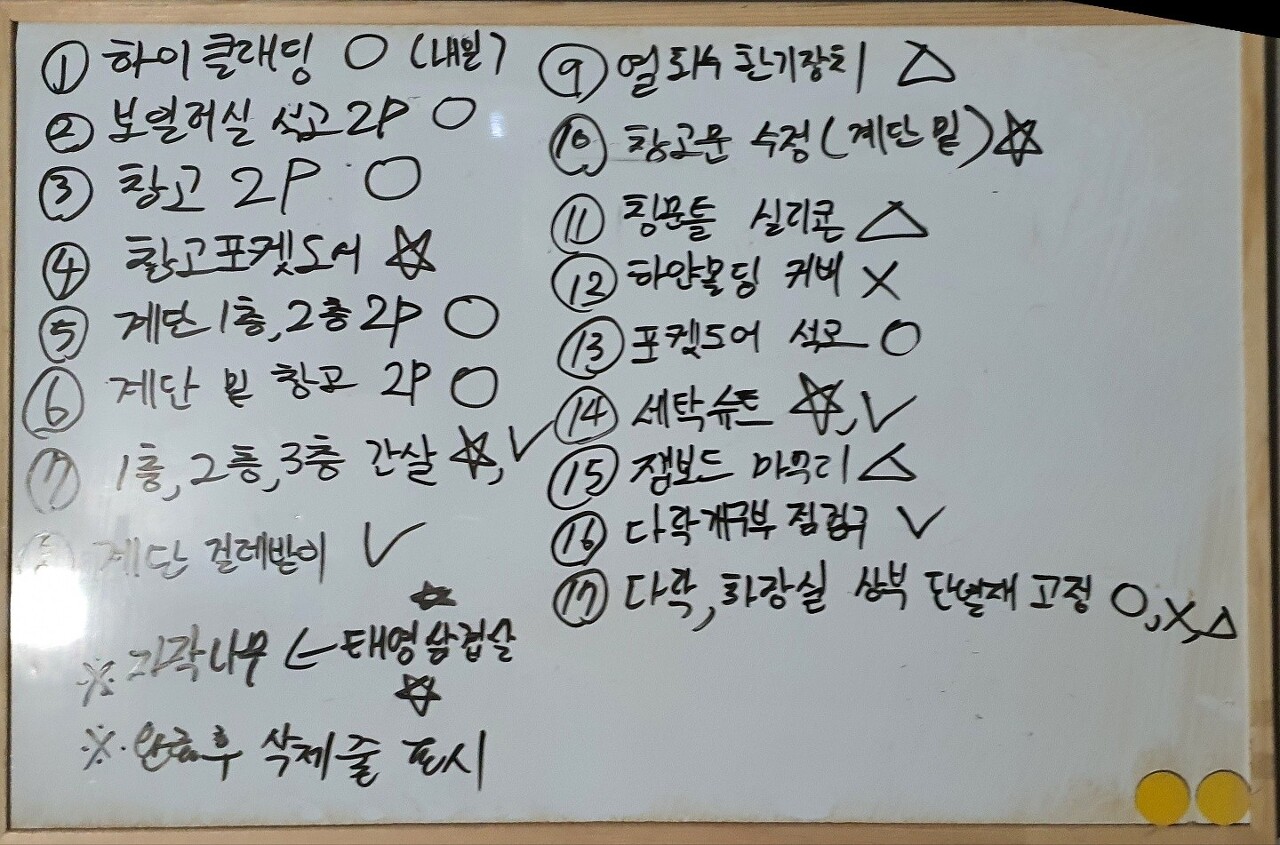 ① 하이클래딩 ○ (내일)
② 보일러실 석고 2P ○
③ 창고 2P ○
④ 창고포켓도어 ☆
⑤ 계단 1층, 2층 2P ○
⑥ 계단 밑 창고 2P ○
⑦ 1층, 2층, 3층 간살 ☆, ✓
⑧ 계단 걸레받이 ✓
☆
※ 지각나무 ← 태영삼겹살
☆
※. 완료후 삭제줄 표시
⑨ 열회수 환기장치 △
⑩ 창고문 수정 (계단 밑) ☆
⑪ 창문틀 실리콘 △
⑫ 하얀몰딩 커버 X
⑬ 포켓도어 석고 ○
⑭ 세탁슈트 ☆, ✓
⑮ 잼보드 마무리 △
⑯ 다락개구부 점검구 ✓
⑰ 다락, 화장실 상부 단열재 고정 ○, X, △